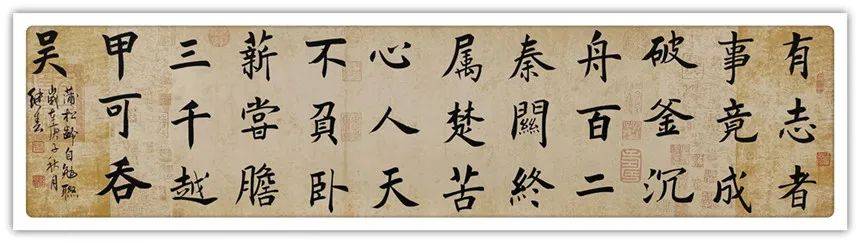 有志者
事竟成
破釜沉
舟百二
秦關終
属楚苦
心人天
不負卧
薪嘗膽
三千越
甲可吞
吴
蒲松齡自勉聯
歲在庚子秋月